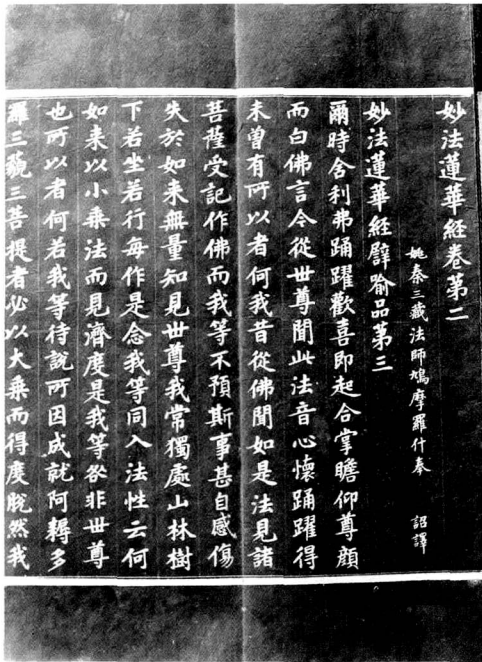 妙法蓮華経卷第二
姚秦三藏法師鳩摩羅什奉 詔譯
妙法蓮華経辟喻品第三
爾時舍利弗踊躍歡喜即起合掌瞻仰尊顔
而白佛言今從世尊聞此法音心懷踊躍得
未曽有所以者何我昔從佛聞如是法見諸
菩薩受記作佛而我等不預斯事甚自感傷
失於如来無量知見世尊我常獨處山林樹
下若坐若行每作是念我等同入法性云何
如来以小乗法而見濟度是我等咎非世尊
也所以者何若我等待說所因成就阿耨多
羅三藐三菩提者必以大乗而得度脫然我